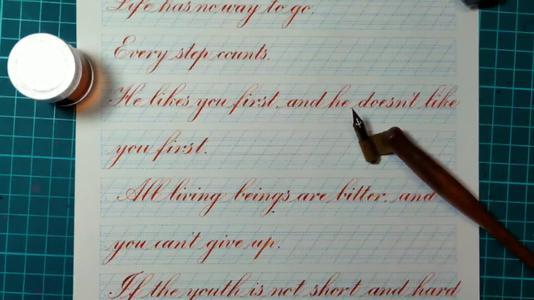 Life has no way to go.
Every step counts.
He likes you first, and he doesn't like
you first.
All living beings are bitter, and
you can't give up.
If the youth is not short and hard